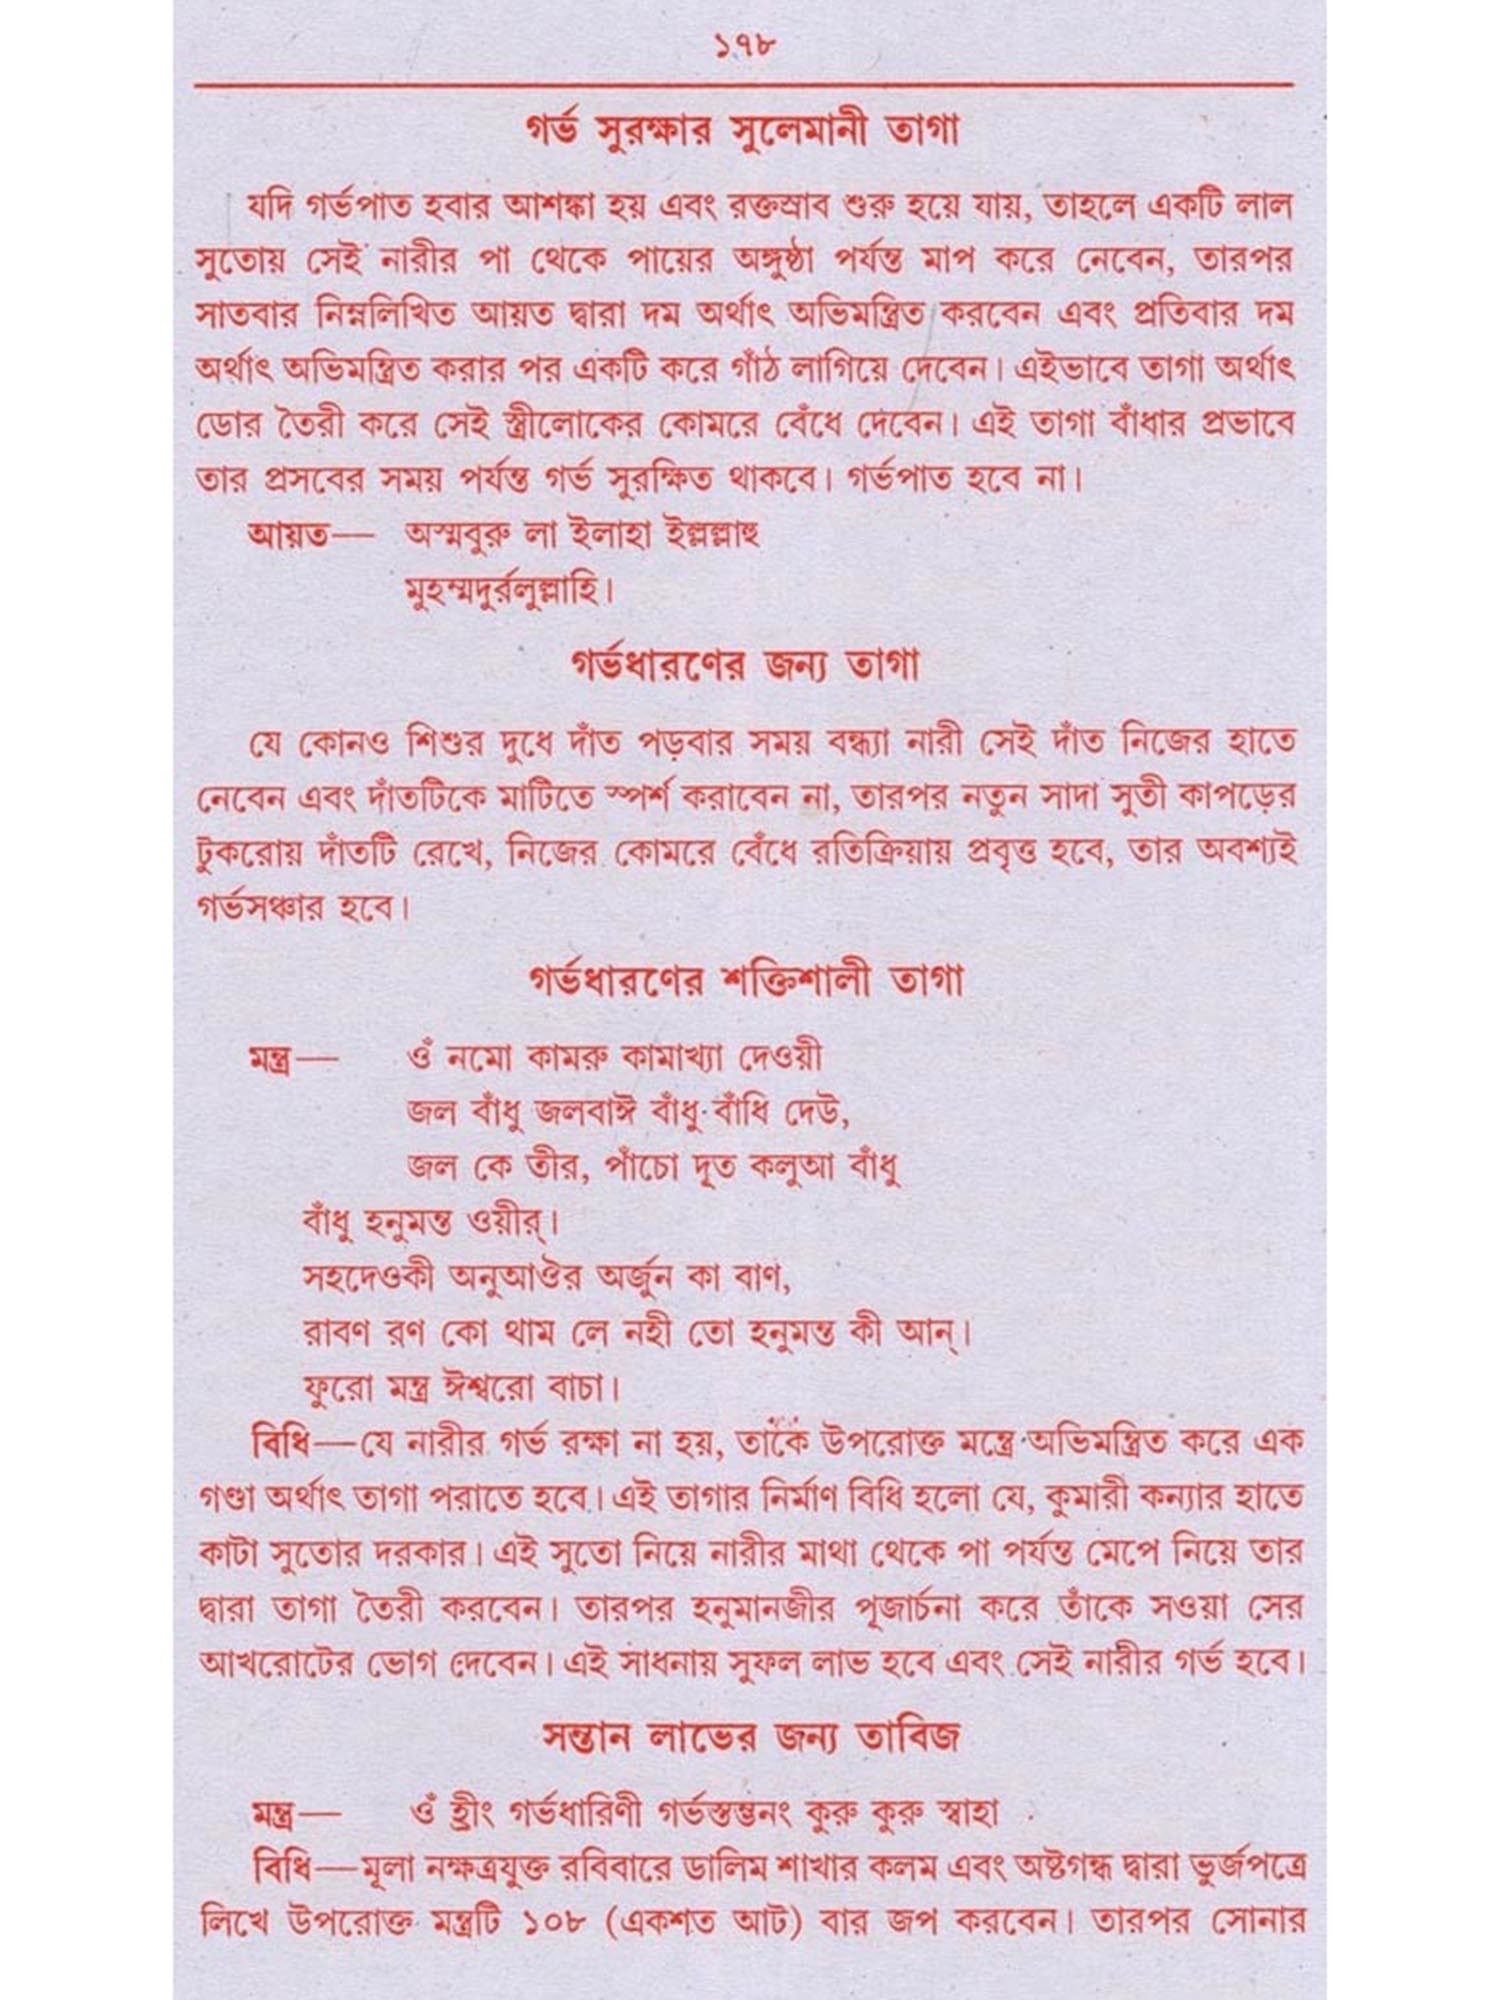 ১৭৮
গর্ভ সুরক্ষার সুলেমানী তাগা
যদি গর্ভপাত হবার আশঙ্কা হয় এবং রক্তস্রাব শুরু হয়ে যায়, তাহলে একটি লাল
সুতোয় সেই নারীর পা থেকে পায়ের অঙ্গুষ্ঠা পর্যন্ত মাপ করে নেবেন, তারপর
সাতবার নিম্নলিখিত আয়ত দ্বারা দম অর্থাৎ অভিমন্ত্রিত করবেন এবং প্রতিবার দম
অর্থাৎ অভিমন্ত্রিত করার পর একটি করে গাঁঠ লাগিয়ে দেবেন। এইভাবে তাগা অর্থাৎ
ডোর তৈরী করে সেই স্ত্রীলোকের কোমরে বেঁধে দেবেন। এই তাগা বাঁধার প্রভাবে
তার প্রসবের সময় পর্যন্ত গর্ভ সুরক্ষিত থাকবে। গর্ভপাত হবে না।
আয়ত— অস্মবুরু লা ইলাহা ইল্লল্লাহু
মুহম্মদুর্রলুল্লাহি।
গর্ভধারণের জন্য তাগা
যে কোনও শিশুর দুধে দাঁত পড়বার সময় বন্ধ্যা নারী সেই দাঁত নিজের হাতে
নেবেন এবং দাঁতটিকে মাটিতে স্পর্শ করাবেন না, তারপর নতুন সাদা সুতী কাপড়ের
টুকরোয় দাঁতটি রেখে, নিজের কোমরে বেঁধে রতিক্রিয়ায় প্রবৃত্ত হবে, তার অবশ্যই
গর্ভসঞ্চার হবে।
গর্ভধারণের শক্তিশালী তাগা
মন্ত্র— ওঁ নমো কামরু কামাখ্যা দেওয়ী
জল বাঁধু জলবাঈ বাঁধু বাঁধি দেউ,
জল কে তীর, পাঁচো দূত কলুআ বাঁধু
বাঁধু হনুমন্ত ওয়ীর্।
সহদেওকী অনুআঔর অর্জুন কা বাণ,
রাবণ রণ কো থাম লে নহী তো হনুমন্ত কী আন্।
ফুরো মন্ত্র ঈশ্বরো বাচা।
বিধি—যে নারীর গর্ভ রক্ষা না হয়, তাকে উপরোক্ত মন্ত্রে অভিমন্ত্রিত করে এক
গণ্ডা অর্থাৎ তাগা পরাতে হবে। এই তাগার নির্মাণ বিধি হলো যে, কুমারী কন্যার হাতে
কাটা সুতোর দরকার। এই সুতো নিয়ে নারীর মাথা থেকে পা পর্যন্ত মেপে নিয়ে তার
দ্বারা তাগা তৈরী করবেন। তারপর হনুমানজীর পূজার্চনা করে তাঁকে সওয়া সের
আখরোটের ভোগ দেবেন। এই সাধনায় সুফল লাভ হবে এবং সেই নারীর গর্ভ হবে।
সন্তান লাভের জন্য তাবিজ
মন্ত্র— ওঁ হ্রীং গর্ভধারিণী গর্ভস্তম্ভনং কুরু কুরু স্বাহা
বিধি—মূলা নক্ষত্রযুক্ত রবিবারে ডালিম শাখার কলম এবং অষ্টগন্ধ দ্বারা ভুর্জপত্রে
লিখে উপরোক্ত মন্ত্রটি ১০৮ (একশত আট) বার জপ করবেন। তারপর সোনার